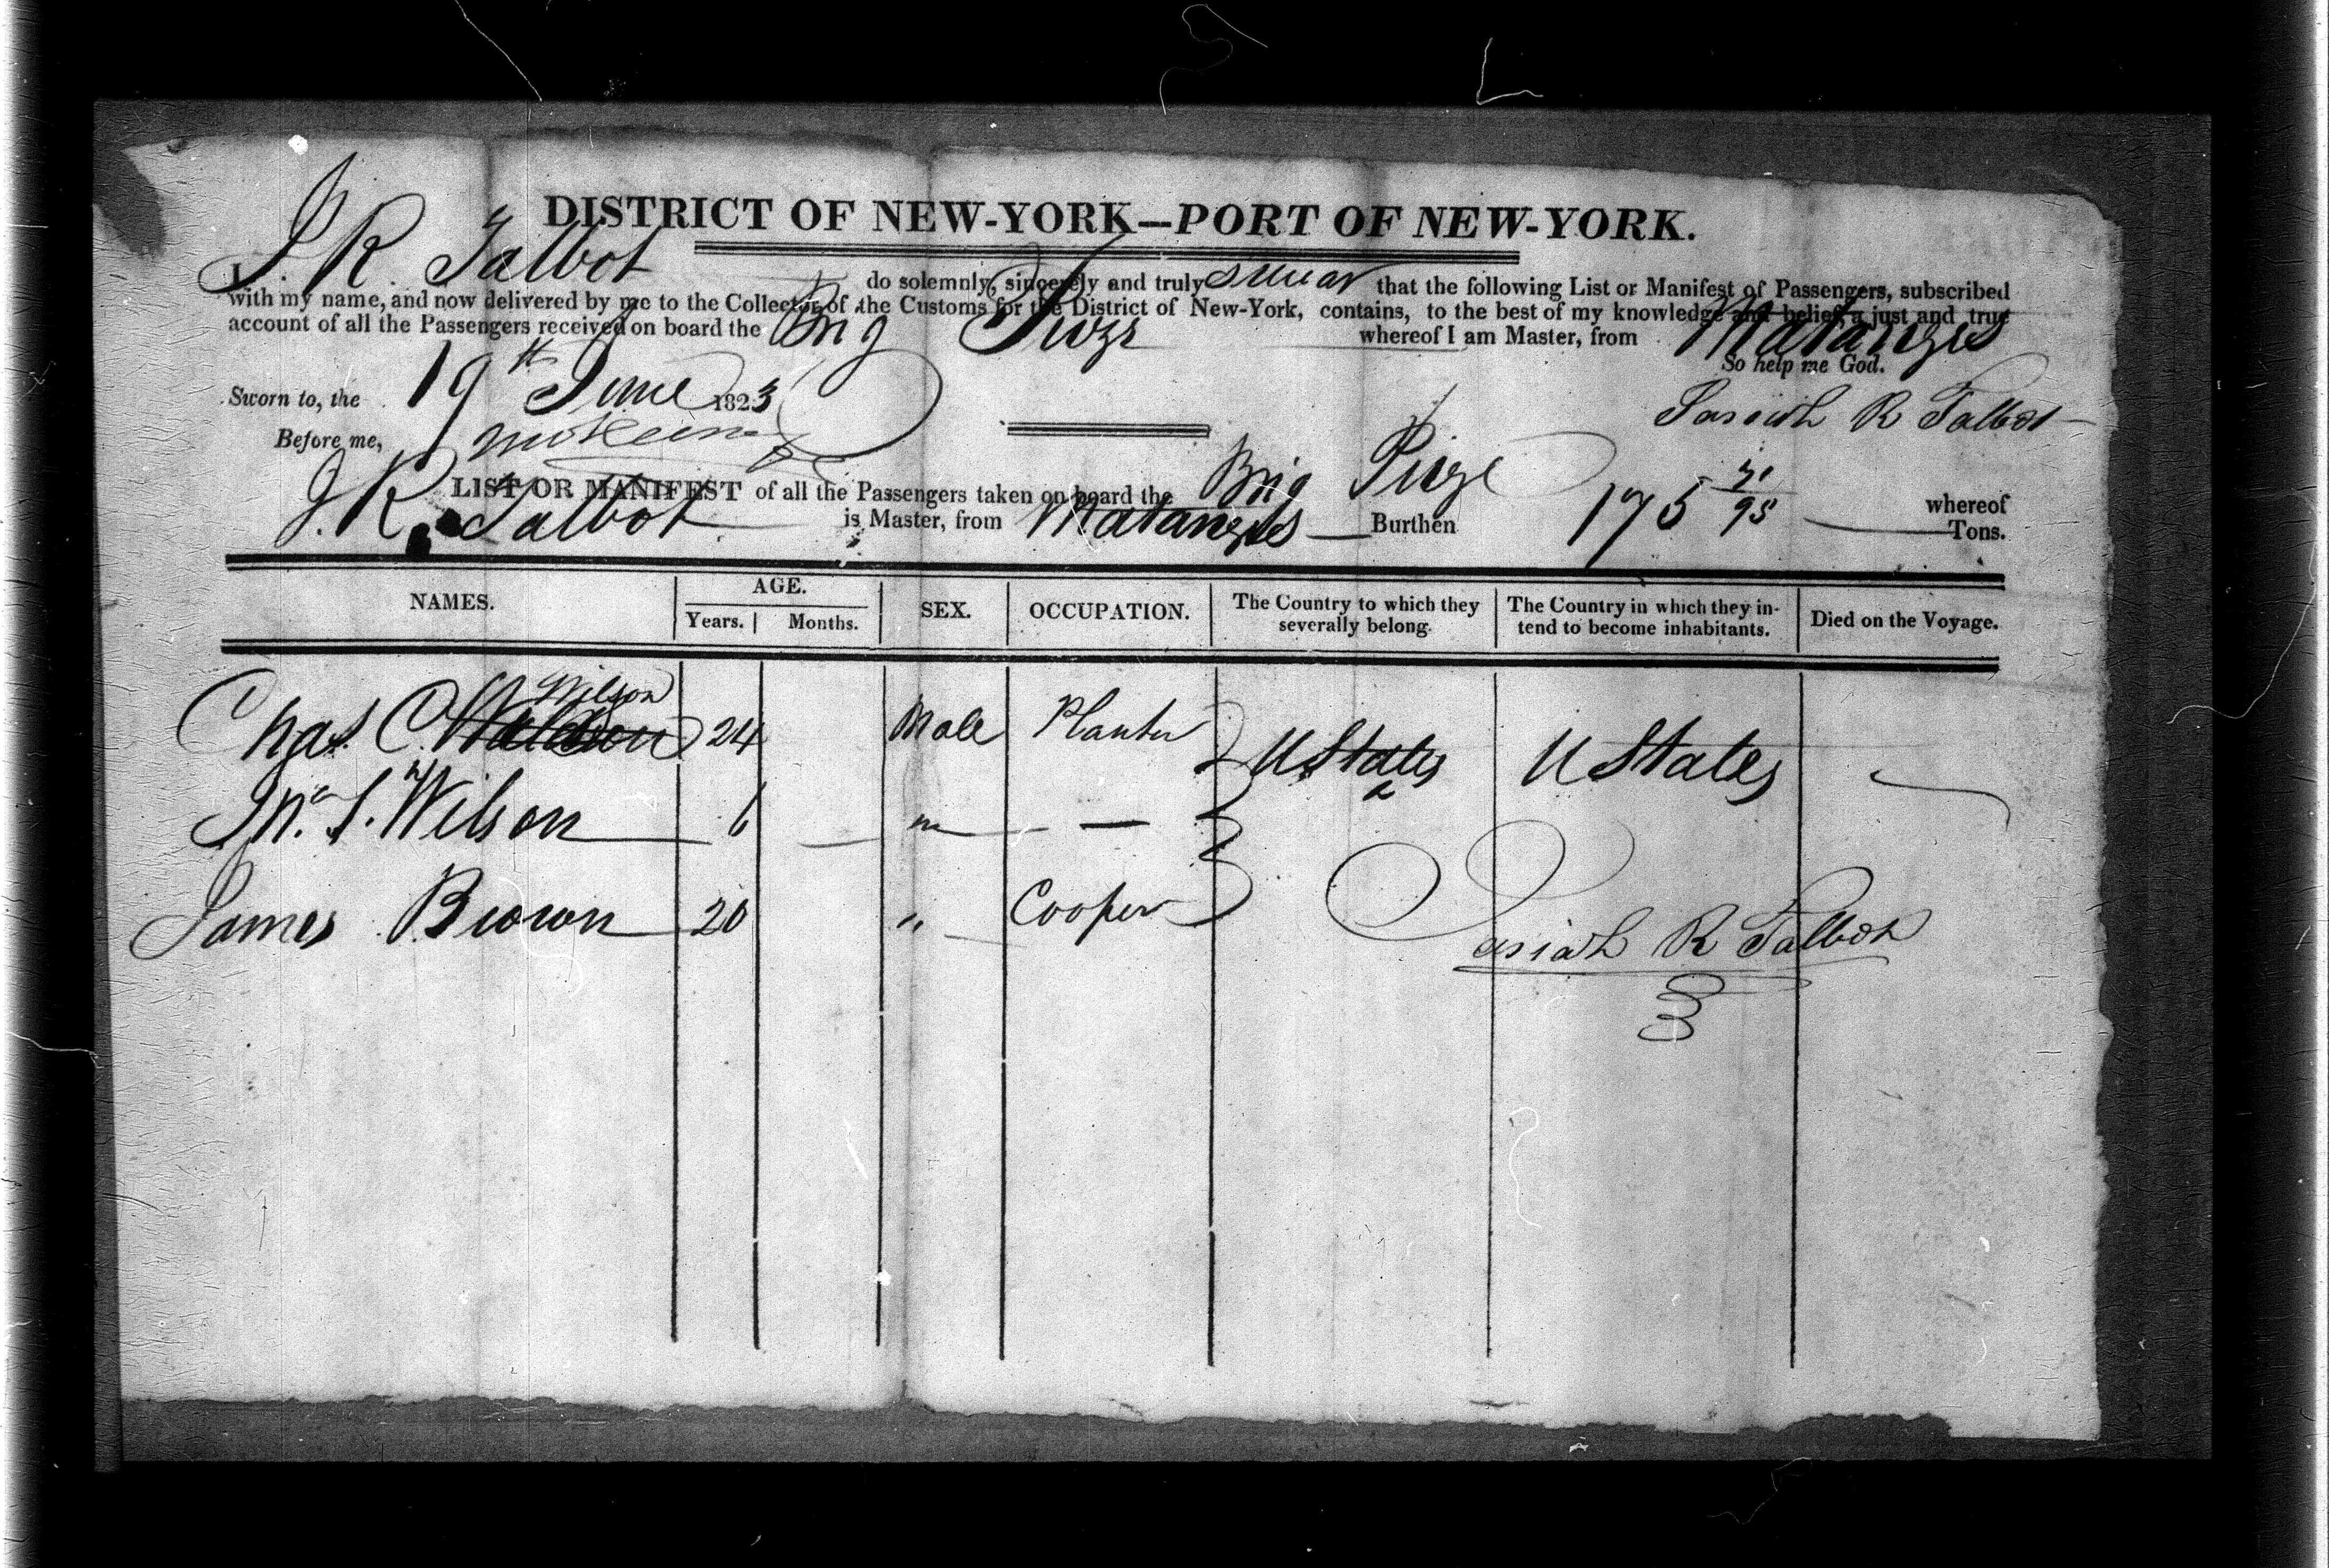 DISTRICT OF NEW-YORK—PORT OF NEW-YORK.
I, J R Talbot do solemnly, sincerely and truly swear that the following List or Manifest of Passengers, subscribed
with my name, and now delivered by me to the Collector of the Customs for the District of New-York, contains, to the best of my knowledge and belief, a just and true
account of all the Passengers received on board the Brig whereof I am Master, from Matanzas
So help me God.
Sworn to, the 19th June 1823
Josiah R Talbot
Before me,
LIST OR MANIFEST of all the Passengers taken on board the Brig whereof
J. R. Talbot is Master, from Matanzas Burthen 175 /95 Tons.
NAMES. AGE. SEX. OCCUPATION. The Country to which they severally belong. The Country in which they intend to become inhabitants. Died on the Voyage.
Years. Months.
Wilson
Chas. C. 24 Male Planter U States U States
Wilson 6 —
James Brown 20 " Cooper
Josiah R Talbot